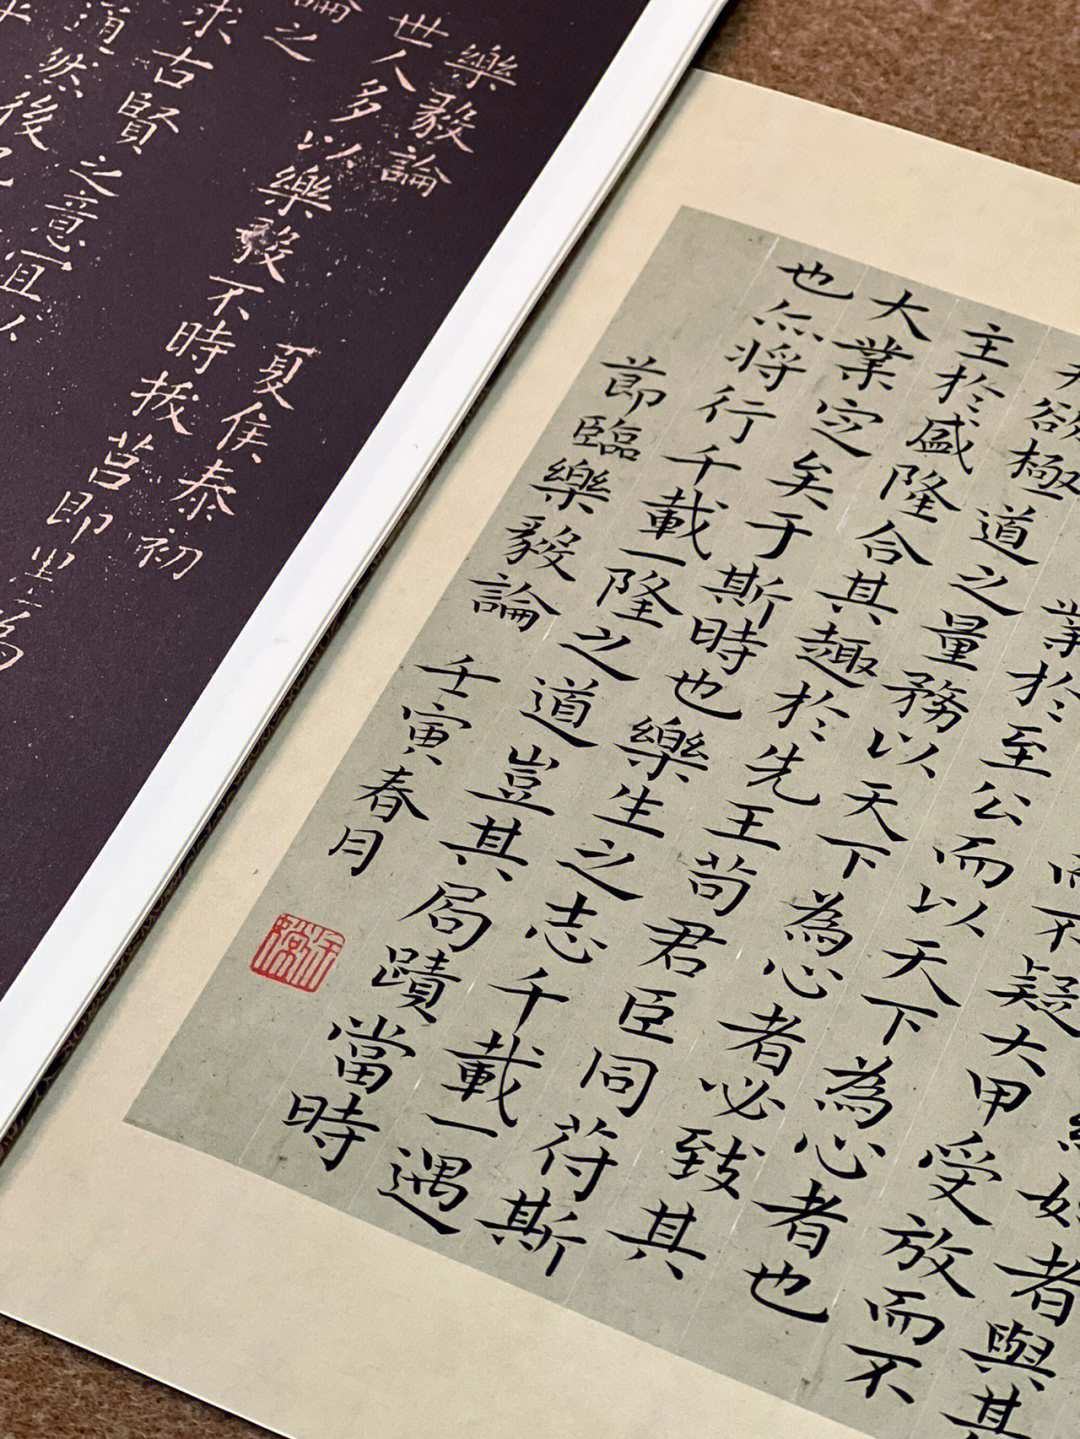 始者與其
而不疑大甲受放而不
業於至公而以天下為心者也
夫欲極道之量務以天下為心者必致其
主於盛隆合其趣於先王苟君臣同苻斯
大業定矣于斯時也樂生之志千載一遇
也亦将行千載一隆之道豈其局蹟當時
莭臨樂毅論 壬寅春月
樂毅論 夏侯泰初
世人多以樂毅不時拔莒即墨為
論之
求古賢之意宜以
通然後已